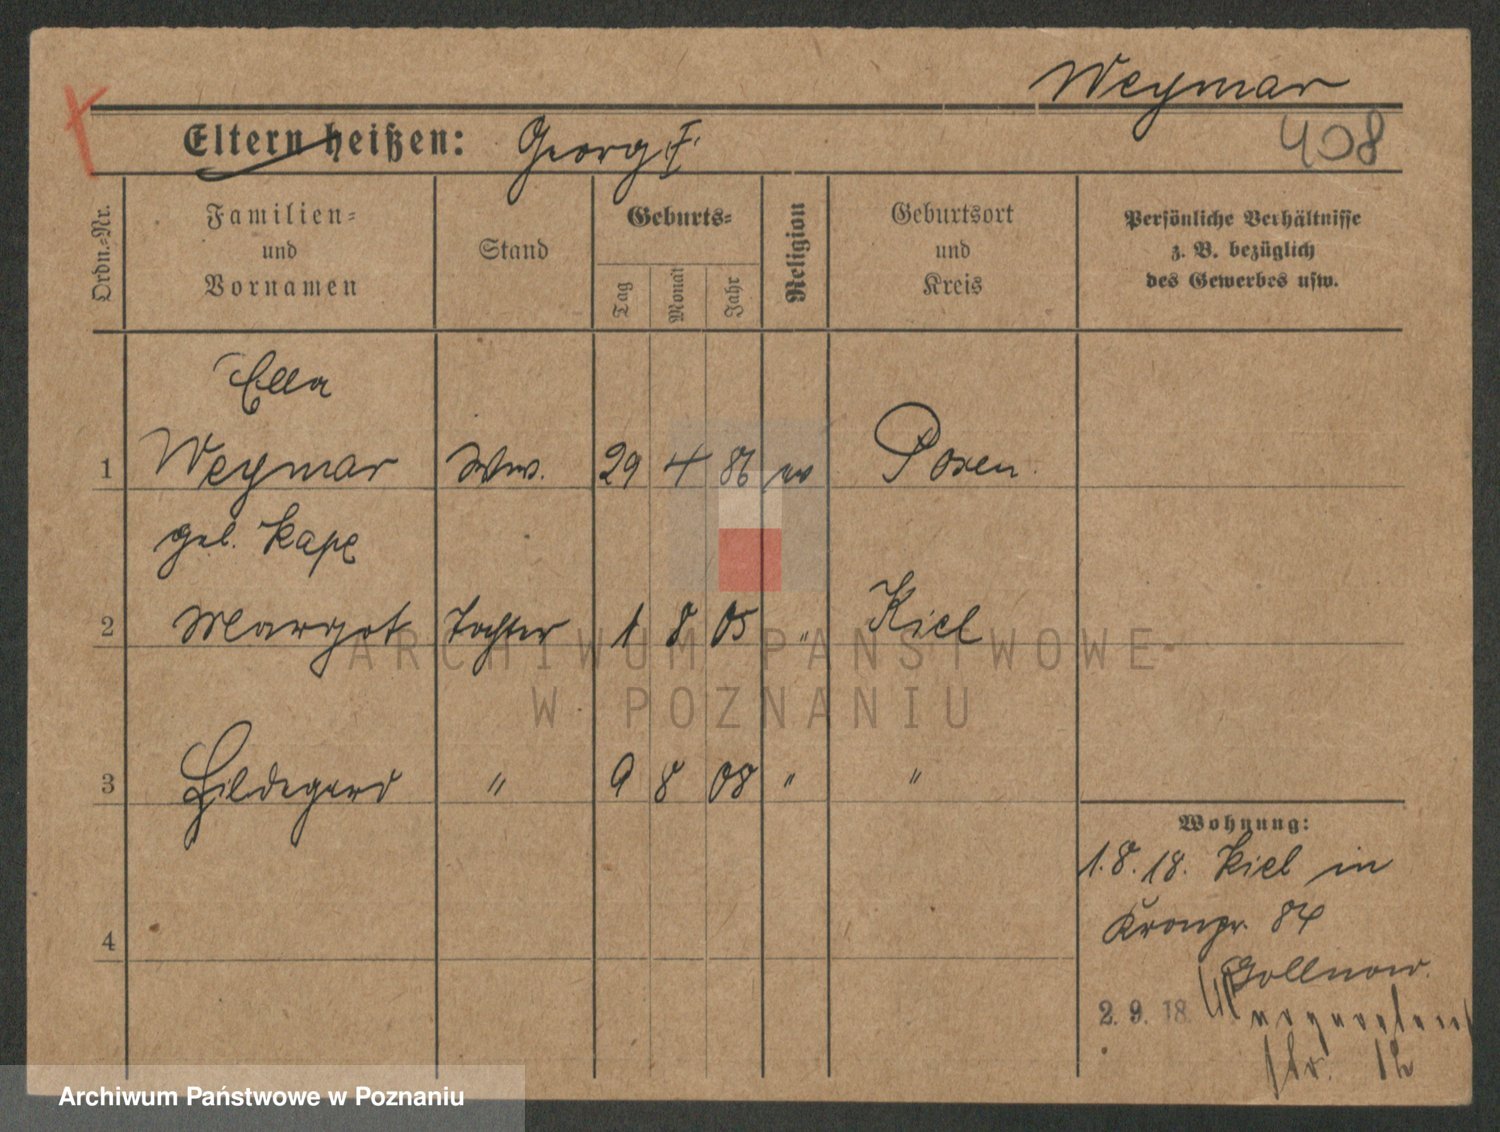 Weymar
Eltern heißen: Georg F. 408
Ordn.=Nr.
Familien=
und
Vornamen
Stand
Geburts=
Tag
Monat
Jahr
Religion
Geburtsort
und
Kreis
Persönliche Verhältnisse
z. B. bezüglich
des Gewerbes usw.
Ella
1 Weymar Ww. 29 4 86 Posen
geb. Kape
2 Margot Tochter 1 8 05 " Kiel
3 Hildegard " 9 8 08 " "
Wohnung:
1.8.18. Kiel in
Kronpr. 84
Gollnow.
4
2. 9. 18. Margareten
str. 12
ARCHIWUM PAŃSTWOWE
W POZNANIU
Archiwum Państwowe w Poznaniu